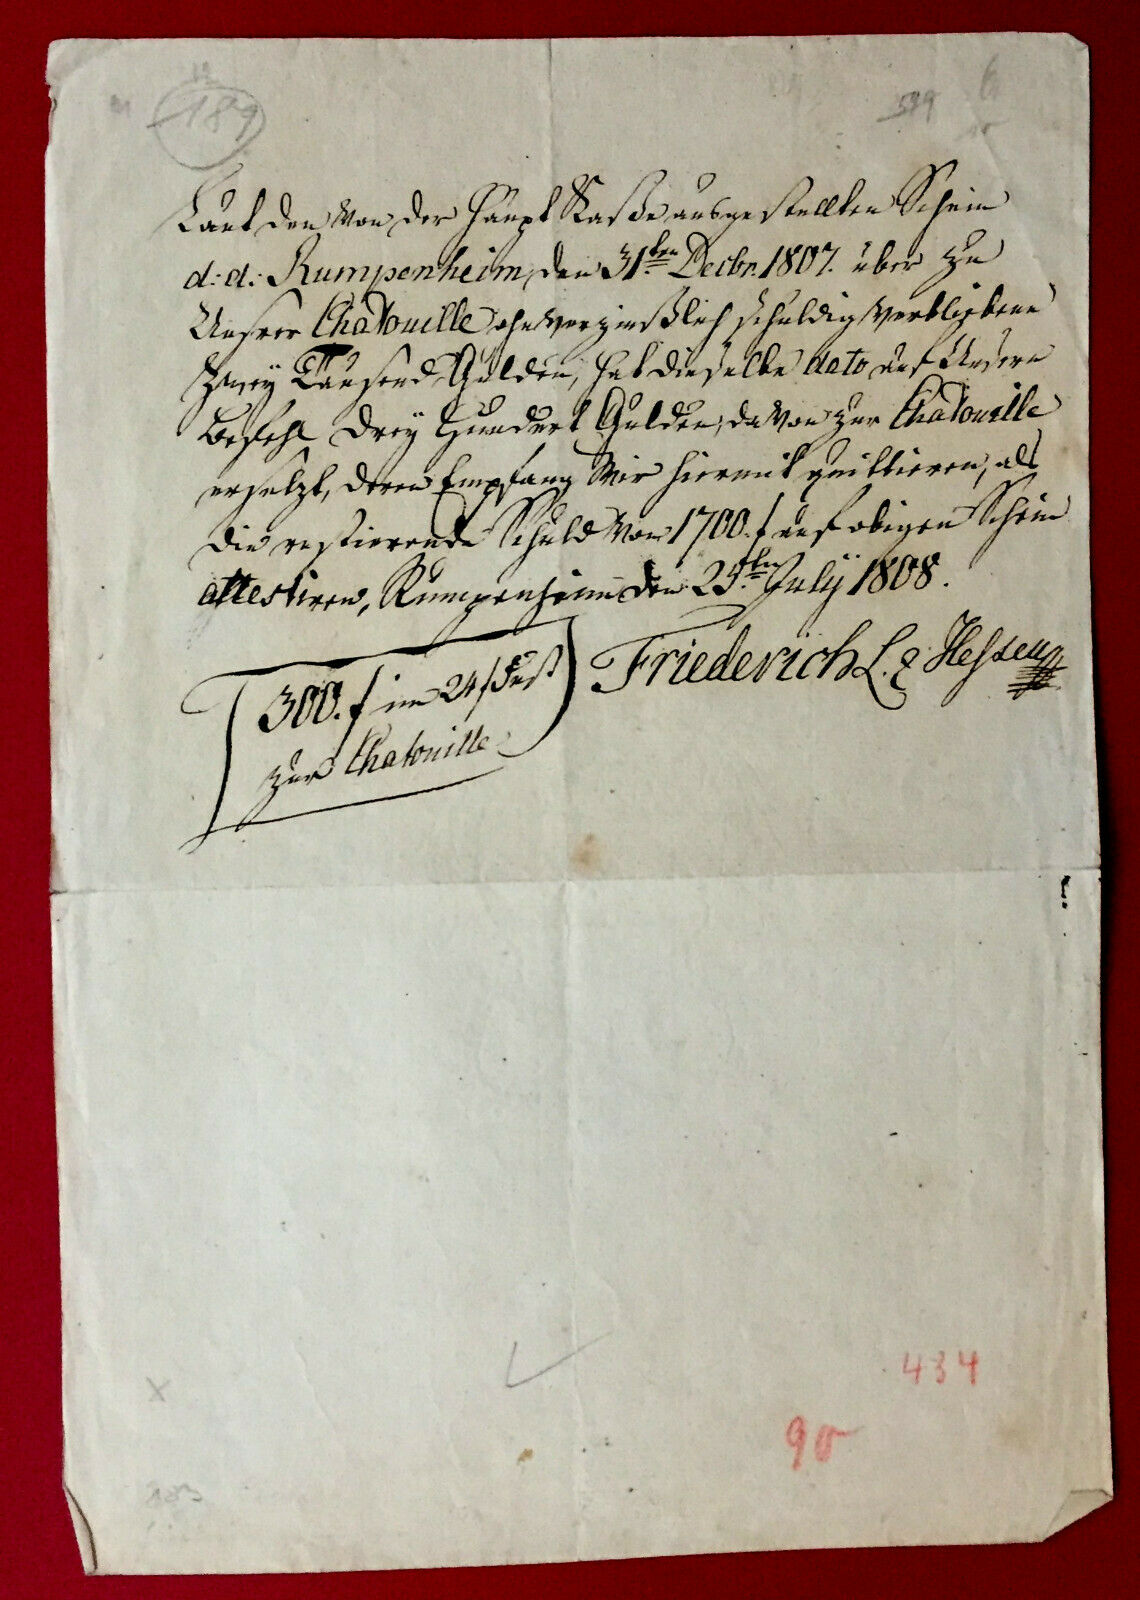 189
599
6
Laut den von der Haupt Kaße ausgestellten Schein
d: d: Rumpenheim, den 31ten Decbr. 1807. über zu
Unsrer Chatouille ohnverzinßlich schuldig verbliebene
Zwey Tausend Gulden, hat dieselbe dato auf Unsern
Befehl Drey Hundert Gulden, davon zur Chatouille
ersetzt, deren Empfang Wir hiermit quittieren, als
die restierende Schuld von 1700. f auf obigen Schein
attestiren, Rumpenheim den 25ten July 1808.
Friederich L. z Hessen
300. f im 24 f Fust
zur Chatouille
434
90